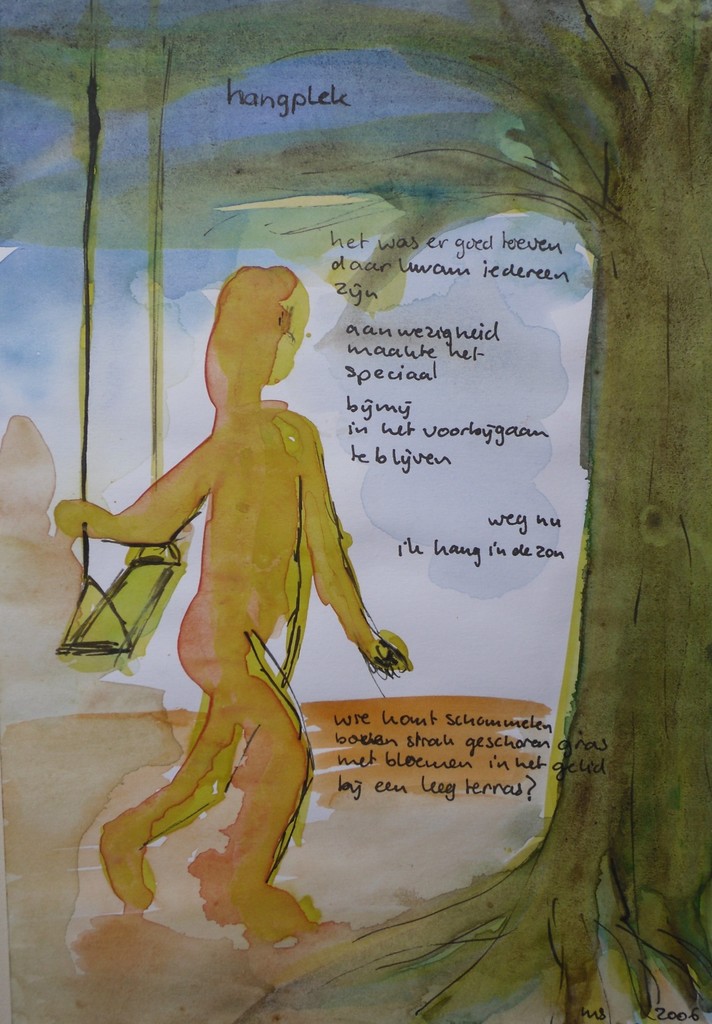 hangplek
het was er goed toeven
daar kwam iedereen
zijn
aanwezigheid
maakte het
speciaal
bij mij
in het voorbijgaan
te blijven
weg nu
ik hang in de zon
wie komt schommelen
boven strak geschoren gras
met bloemen in het gelid
bij een leeg terras?
ms 2006